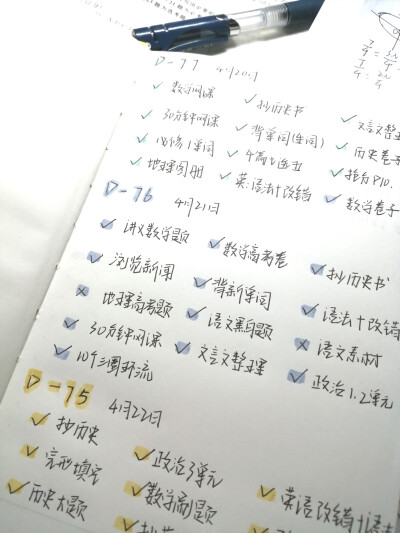 D-77 4月20日
✓ 数学网课 ✓ 抄历史书
✓ 30分钟网课 ✓ 背单词(生词) ✓ 文言文整理
✓ 必修1单词 ✓ 历史卷子
✓ 地理图册 ✓ 英:语法+改错 ✓ 数学卷子
D-76 4月21日
✓ 讲义数学题 ✓ 数学高考卷 ✓ 抄历史书
✓ 浏览新闻 ✓ 背新单词 ✓ 语法+改错
× 地理高考题 ✓ 语文票题 × 语文素材
✓ 30分钟网课 ✓ 文言文整理 ✓ 政治1.2单元
✓ 10个三圈环流
D-75 4月22日
✓ 抄历史 ✓ 政治3单元 ✓ 英语改错+语法
✓ 完形填空 ✓ 数学刷题
✓ 历史大题